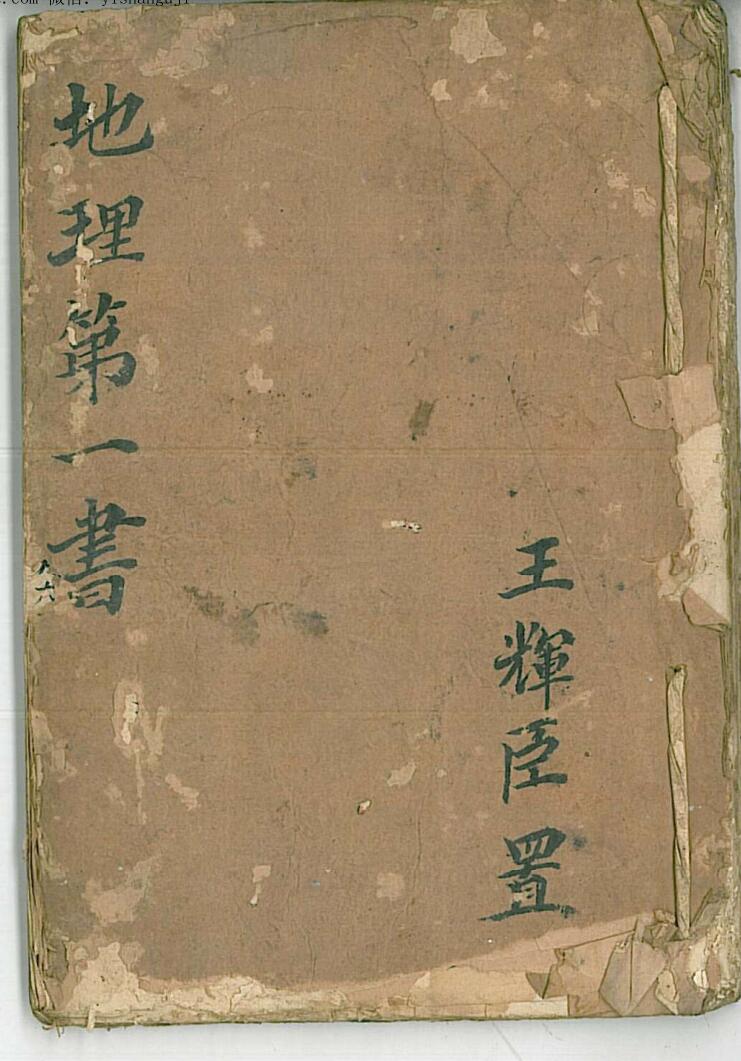 .com 微信: yishanguji
地理第一書
王輝臣置